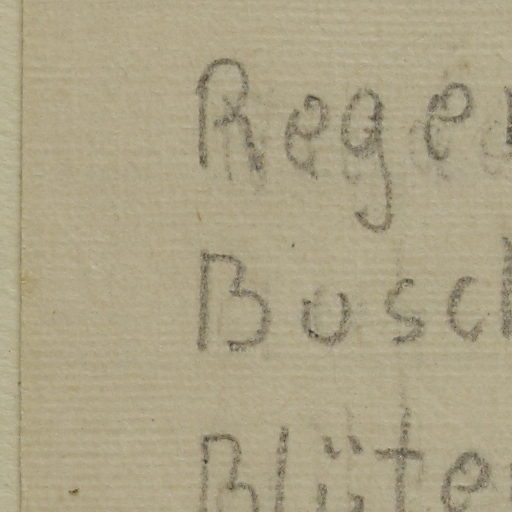 Rege
Busc
Blüte